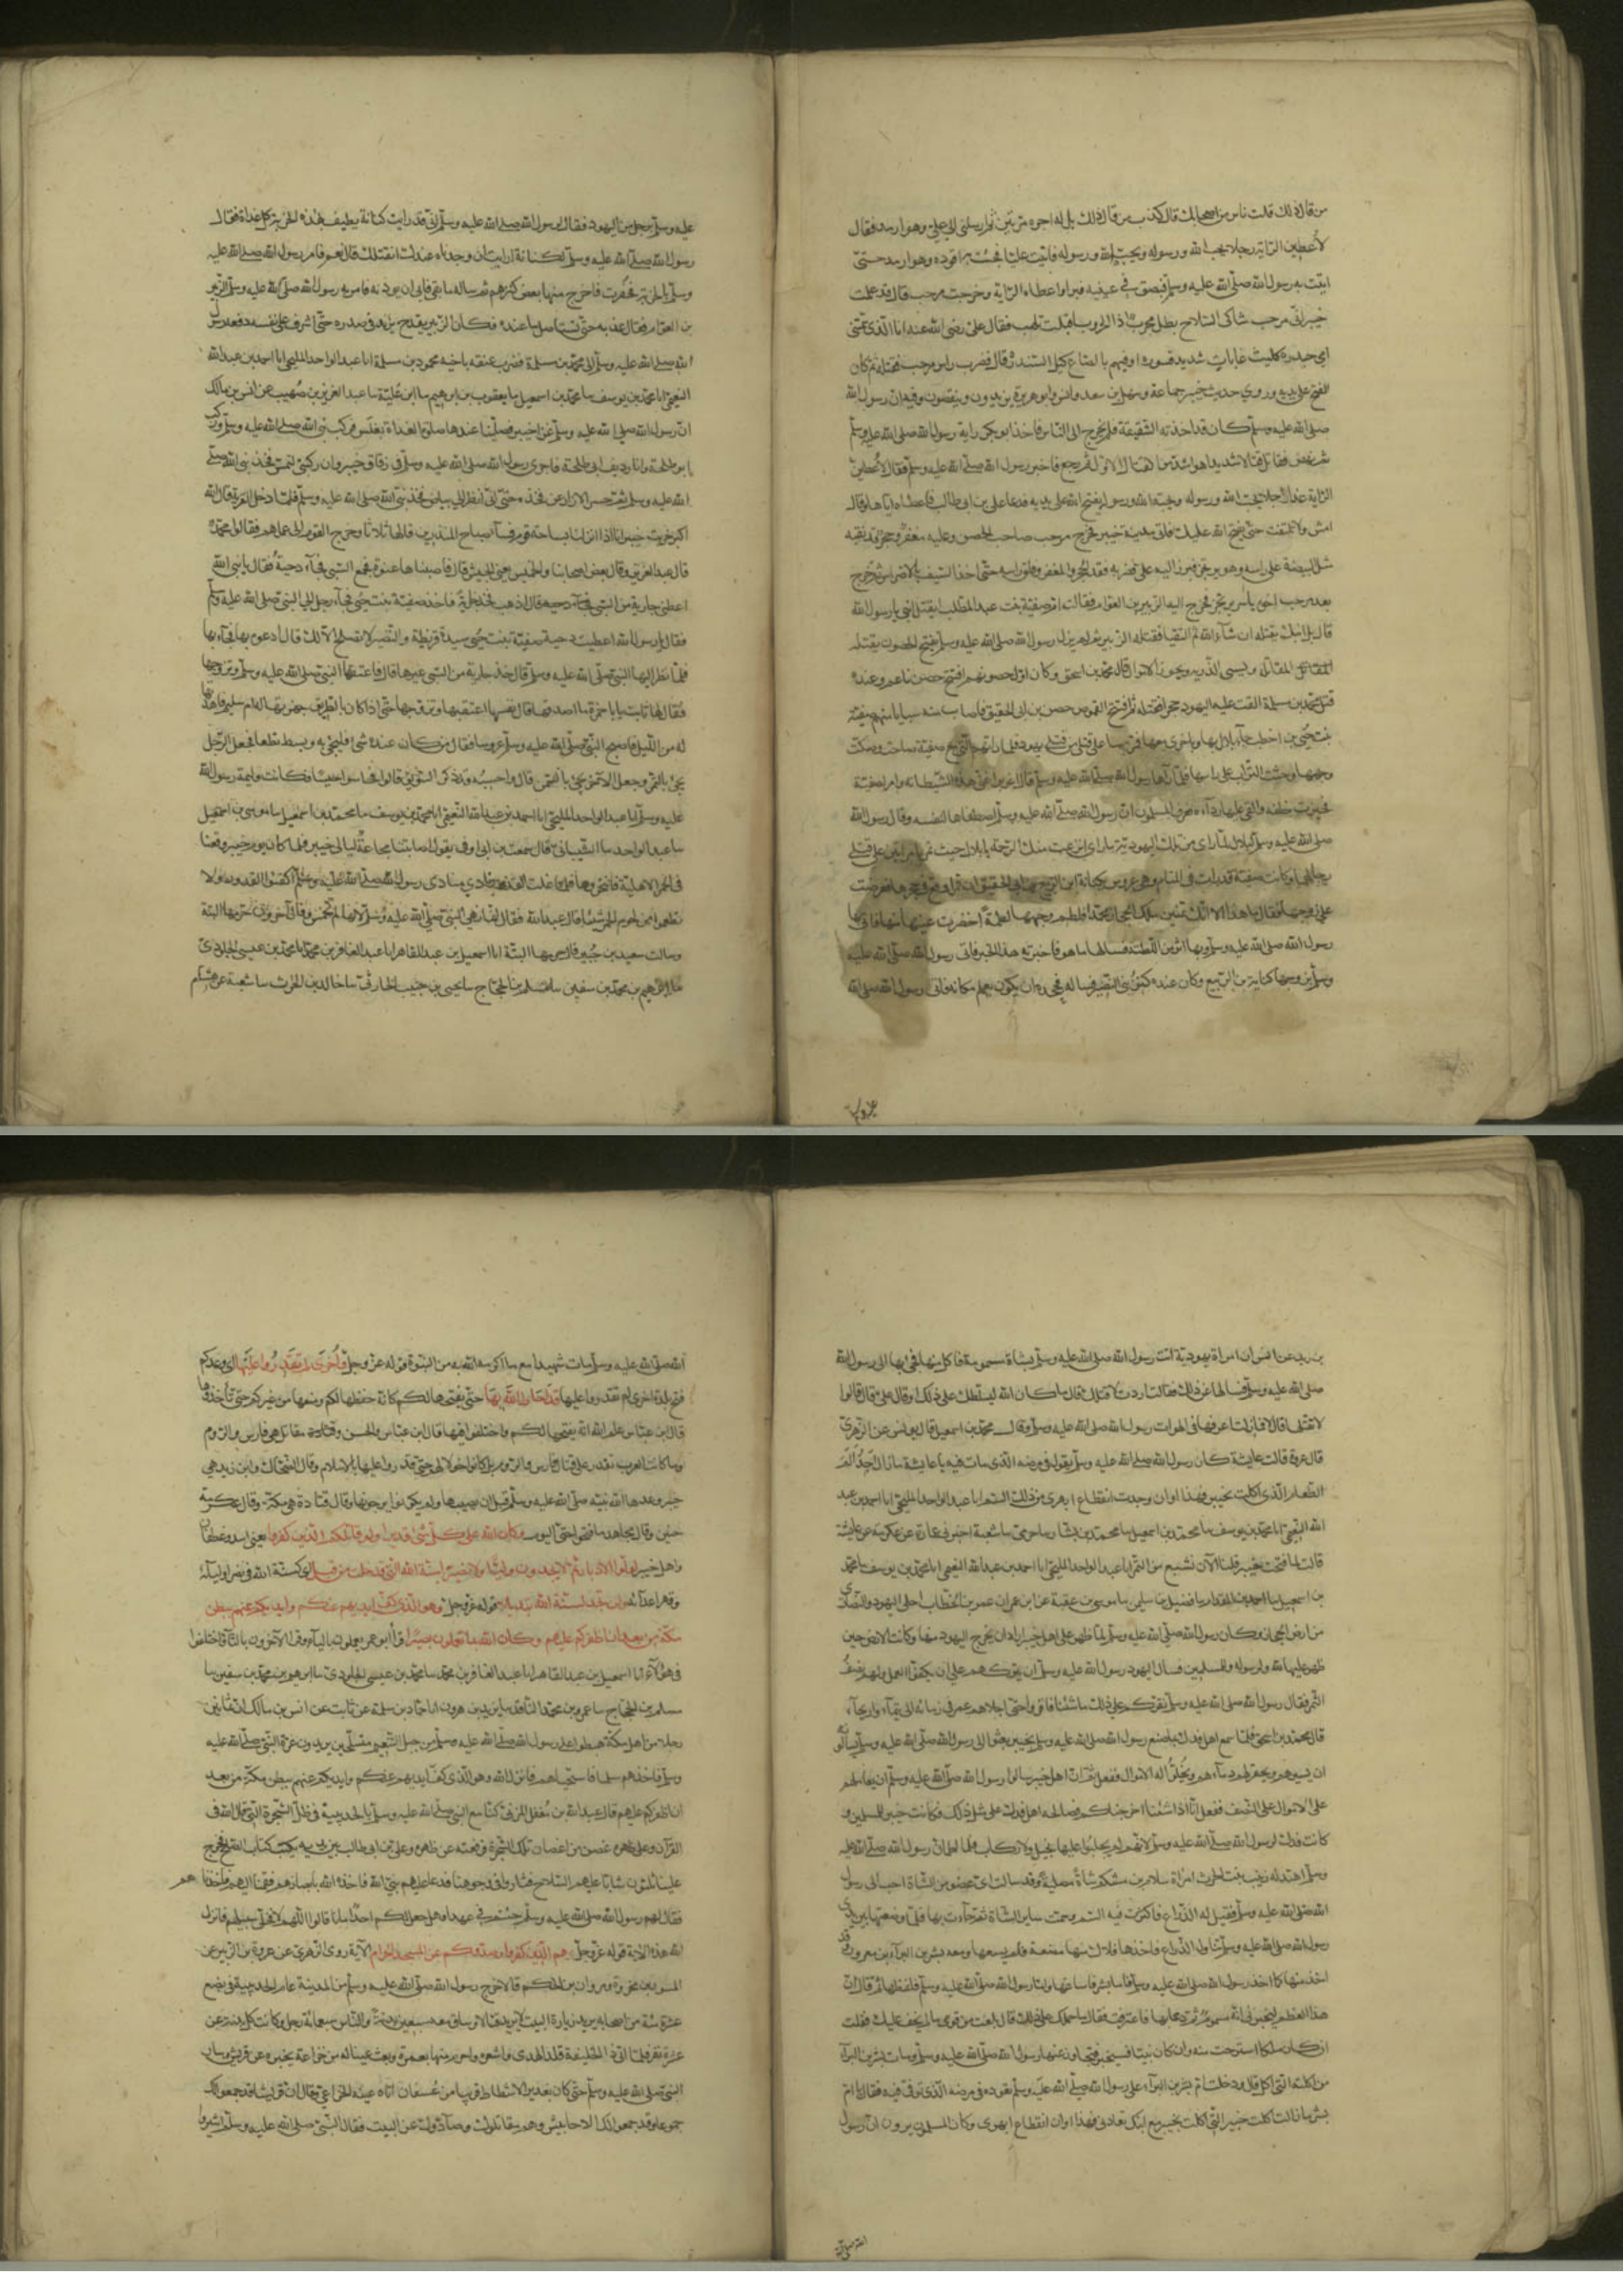 من قال ذلك قلت ناس من اصحابك قال كذب من قال ذلك بل له اجره مرتين ثم ارسلني الى علي وهو ارمد فقال
لأعطين الراية رجلا يحب الله ورسوله ويحبه الله ورسوله فاتيت عليا فجئت به اقوده وهو ارمد حتى
اتيت به رسول الله صلى الله عليه وسلم فبصق في عينيه فبرأ واعطاه الراية وخرجت مرحب قال قد علمت
خيبر اني مرحب شاكي السلاح بطل مجرب اذا الحروب اقبلت تلهب فقال علي رضي الله عنه انا الذي سمتني
امي حيدره كليث غابات شديد قسوره اوفيهم بالصاع كيل السندره قال فضرب راس مرحب فقتله ثم كان
الفتح على يديه وروي حديث خيبر جماعة وسهل بن سعد وانس وابو هريرة يزيدون وينقصون وفيه ان رسول الله
صلى الله عليه وسلم كان قد اخذته الشقيقة فلم يخرج الى الناس فاخذ ابو بكر راية رسول الله صلى الله عليه وسلم
ثم نهض فقاتل قتالا شديدا هو اشد من القتال الاول ثم رجع فاخبر رسول الله صلى الله عليه وسلم فقال لأعطين
الراية غدا رجلا يحب الله ورسوله ويحبه الله ورسوله يفتح الله على يديه فدعا علي بن ابي طالب فاعطاه اياها وقال
امش ولا تلتفت حتى يفتح الله عليك فاتى مدينة خيبر فخرج مرحب صاحب الحصن وعليه مغفر وحجر قد نقبه
مثل البيضة على راسه وهو يرتجز فبرز اليه علي فضربه فقد الحجر والمغفر وفلق راسه حتى اخذ السيف في الاضراس ثم خرج
بعد مرحب اخوه ياسر يرتجز فخرج اليه الزبير بن العوام فقالت امه صفية بنت عبد المطلب ايقتل ابني يا رسول الله
قال بل ابنك يقتله ان شآء الله ثم التقيا فقتله الزبير ثم لم يزل رسول الله صلى الله عليه وسلم يفتح الحصون ويقتل
المقاتلة ويسبي الذرية ويحوز الاموال قال محمد بن اسحق وكان اول حصونهم افتتح حصن ناعم وعنده
قتل محمود بن مسلمة القت عليه اليهود حجرا فقتله ثم افتتح القموص حصن بن ابي الحقيق فاصاب منه سبايا منهم صفية
بنت حيي بن اخطب جآء بلال بها وباخرى معها فمر بهما على قتلى من قتلى يهود فلما راتهم التي مع صفية صاحت وصكت
وجهها وحثت التراب على راسها فلما رآها رسول الله صلى الله عليه وسلم قال اعزبوا عني هذه الشيطانة وامر بصفية
فحيزت خلفه والقى عليها ردآءه فعرف المسلمون ان رسول الله صلى الله عليه وسلم اصطفاها لنفسه وقال رسول الله
صلى الله عليه وسلم لبلال لما راى من تلك اليهودية ما راى انزعت منك الرحمة يا بلال حيث تمر بامراتين على قتلى
رجالهما وكانت صفية قد رات في المنام وهي عروس بكنانة بن الربيع بن ابي الحقيق ان قمرا وقع في حجرها فعرضت
على زوجها فقال ما هذا الا انك تمنين ملك الحجاز محمدا فلطم وجهها لطمة اخضرت عينها منها فاتى بها
رسول الله صلى الله عليه وسلم وبها اثر من اللطمة فسالها ما هو فاخبرته هذا الخبر فاتى رسول الله صلى الله عليه
وسلم بزوجها كنانة بن الربيع وكان عنده كنز بني النضير فساله فجحد ان يكون يعلم مكانه فاتى رسول الله صلى الله
عليه وسلم برجل من اليهود فقال لرسول الله صلى الله عليه وسلم اني قد رايت كنانة يطيف بهذه الخربة كل غداة فقال
رسول الله صلى الله عليه وسلم لكنانة ارايت ان وجدناه عندك انقتلك قال نعم فامر رسول الله صلى الله عليه
وسلم بالخربة فحفرت فاخرج منها بعض كنزهم ثم ساله ما بقي فابى ان يوديه فامر به رسول الله صلى الله عليه وسلم الزبير
بن العوام فقال عذبه حتى تستاصل ما عنده فكان الزبير يقدح بزند في صدره حتى اشرف على نفسه ثم دفعه رسول
الله صلى الله عليه وسلم الى محمد بن مسلمة فضرب عنقه باخيه محمود بن مسلمة انا عبد الواحد المليحي انا احمد بن عبد الله
النعيمي انا محمد بن يوسف سا محمد بن اسمعيل سا يعقوب بن ابرهيم سا ابن علية سا عبد العزيز بن صهيب عن انس بن مالك
ان رسول الله صلى الله عليه وسلم غزا خيبر فصلينا عندها صلوة الغداة بغلس فركب نبي الله صلى الله عليه وسلم وركب
ابو طلحة وانا رديف ابي طلحة فاجرى رسول الله صلى الله عليه وسلم في زقاق خيبر وان ركبتي لتمس فخذ نبي الله صلى
الله عليه وسلم ثم حسر الازار عن فخذه حتى اني انظر الى بياض فخذ نبي الله صلى الله عليه وسلم فلما دخل القرية قال الله
اكبر خربت خيبر انا اذا نزلنا بساحة قوم فسآء صباح المنذرين قالها ثلاثا وخرج القوم الى اعمالهم فقالوا محمد
قال عبد العزيز وقال بعض اصحابنا والخميس يعني الجيش قال فاصبناها عنوة فجمع السبي فجآء دحية فقال يا نبي الله
اعطني جارية من السبي قال اذهب فخذ جارية فاخذ صفية بنت حيي فجآء رجل الى النبي صلى الله عليه وسلم
فقال يا رسول الله اعطيت دحية صفية بنت حيي سيدة قريظة والنضير لا تصلح الا لك قال ادعوه بها فجآء بها
فلما نظر اليها النبي صلى الله عليه وسلم قال خذ جارية من السبي غيرها قال فاعتقها النبي صلى الله عليه وسلم وتزوجها
فقال لها ثابت يا ابا حمزة ما اصدقها قال نفسها اعتقها وتزوجها حتى اذا كان بالطريق جهزتها له ام سليم فاهدتها
له من الليل فاصبح النبي صلى الله عليه وسلم عروسا فقال من كان عنده شئ فليجئ به وبسط نطعا فجعل الرجل
يجئ بالتمر وجعل الاخر يجئ بالسمن قال واحسبه قد ذكر السويق قالوا فحاسوا حيسا فكانت وليمة رسول الله
عليه وسلم انا عبد الواحد المليحي انا احمد بن عبد الله النعيمي انا محمد بن يوسف سا محمد بن اسمعيل سا موسى بن اسمعيل
سا عبد الواحد سا الشيباني قال سمعت بن ابي اوفى يقول اصابتنا مجاعة ليالي خيبر فلما كان يوم خيبر وقعنا
في الحمر الاهلية فانتحرناها فلما غلت القدور نادى منادى رسول الله صلى الله عليه وسلم اكفئوا القدور ولا
تطعموا من لحوم الحمر شيئا قال عبد الله فقال انما نهى النبي صلى الله عليه وسلم لانها لم تخمس وقال آخرون حرمها البتة
وسالت سعيد بن جبير فقال حرمها البتة انا اسمعيل بن عبد القاهر انا عبد الغافر بن محمد انا محمد بن عيسى الجلودي
سا ابرهيم بن محمد بن سفين سا مسلم بن الحجاج سا يحيى بن حبيب الحارثي سا خالد بن الحرث سا شعبة عن هشام
بن زيد عن انس ان امراة يهودية اتت رسول الله صلى الله عليه وسلم بشاة مسمومة فاكل منها فجئ بها الى رسول الله
صلى الله عليه وسلم فسالها عن ذلك فقالت اردت لاقتلك قال ما كان الله ليسلطك على ذلك او قال علي قال قالوا
لا نقتلها قال لا فما زلت اعرفها في لهوات رسول الله صلى الله عليه وسلم وقال محمد بن اسمعيل قال يونس عن الزهري
قال عروة قالت عايشة كان رسول الله صلى الله عليه وسلم يقول في مرضه الذي مات فيه يا عايشة ما ازال اجد الم
الطعام الذي اكلت بخيبر فهذا اوان وجدت انقطاع ابهري من ذلك السم انا عبد الواحد المليحي انا احمد بن عبد
الله النعيمي انا محمد بن يوسف سا محمد بن اسمعيل سا محمد بن بشار سا حرمي سا شعبة اخبرني عمارة عن عكرمة عن عايشة
قالت لما فتحت خيبر قلنا الآن نشبع من التمر انا عبد الواحد المليحي انا احمد بن عبد الله النعيمي انا محمد بن يوسف سا محمد
بن اسمعيل سا احمد بن المقدام سا فضيل بن سليمن سا موسى بن عقبة عن ابن عمر ان عمر بن الخطاب اجلى اليهود والنصارى
من ارض الحجاز وكان رسول الله صلى الله عليه وسلم لما ظهر على اهل خيبر اراد ان يخرج اليهود منها وكانت الارض حين
ظهر عليها لله ولرسوله وللمسلمين فسال اليهود رسول الله عليه وسلم ان يتركهم على ان يكفوا العمل ولهم نصف
الثمر فقال رسول الله صلى الله عليه وسلم نقركم على ذلك ما شئنا فاقروا حتى اجلاهم عمر في زمانه الى تيمآء واريحآء
قال محمد بن اسحق فلما سمع اهل فدك بما صنع رسول الله صلى الله عليه وسلم بخيبر بعثوا الى رسول الله صلى الله عليه وسلم يسالونه
ان يسيرهم ويحقن لهم دمآءهم ويخلوا له الاموال ففعل ثم ان اهل خيبر سالوا رسول الله صلى الله عليه وسلم ان يعاملهم
على الاموال على النصف ففعل انا اذا شئنا اخرجناكم فصالحه اهل فدك على مثل ذلك فكانت خيبر للمسلمين و
كانت فدك لرسول الله صلى الله عليه وسلم لانهم لم يجلبوا عليها بخيل ولا ركاب فلما اطمان رسول الله صلى الله عليه
وسلم اهدت له زينب بنت الحرث امراة سلام بن مشكم شاة مصلية وقد سالت اي عضو من الشاة احب الى رسول
الله صلى الله عليه وسلم فقيل له الذراع فاكثرت فيه السم وسمت ساير الشاة ثم جآءت بها فلما وضعتها بين يدى
رسول الله صلى الله عليه وسلم تناول الذراع فاخذها فلاك منها مضغة فلم يسغها ومعه بشر بن البرآء بن معرور وقد
اخذ منها كما اخذ رسول الله صلى الله عليه وسلم فاما بشر فاساغها واما رسول الله صلى الله عليه وسلم فلفظها ثم قال ان
هذا العظم ليخبرني انه مسموم ثم دعا بها فاعترفت فقال ما حملك على ذلك قال بلغت من قومي ما لم يخف عليك فقلت
ان كان ملكا استرحت منه وان كان نبيا فسيخبر فتجاوز عنها رسول الله صلى الله عليه وسلم ومات بشر بن البرآء
من اكلته التي اكل قال ودخلت ام بشر بن البرآء على رسول الله صلى الله عليه وسلم تعوده في مرضه الذي توفي فيه فقال يا ام
بشر ما زالت اكلت خيبر التي اكلت بخيبر مع ابنك تعادني فهذا اوان انقطاع ابهري وكان المسلمون يرون ان رسول
الله صلى الله عليه وسلم مات شهيدا مع ما اكرمه الله به من النبوة قوله عز وجل وأخرى لم تقدروا عليها اي وعدكم
فتح بلدة اخرى لم تقدروا عليها قد احاط الله بها حتى يفتحها لكم كانه حفظها لكم ومنعها من غيركم حتى تأخذوها
قال ابن عباس علم الله انه يفتحها لكم واختلفوا فيها قال ابن عباس والحسن وقتادة مقاتل هي فارس والروم
وما كانت العرب تقدر على قتال فارس والروم بل كانوا خولا لهم حتى قدروا عليها بالاسلام وقال الضحاك وابن زيد هي
خيبر وعدها الله نبيه صلى الله عليه وسلم قبل ان يصيبها ولم يكونوا يرجونها وقال قتادة هي مكة وقال عكرمة
حنين وقال مجاهد ما فتحوا حتى اليوم وكان الله على كل شئ قديرا ولو قاتلكم الذين كفروا يعني اسد وغطفان
واهل خيبر لولوا الادبار ثم لا يجدون وليا ولا نصيرا سنة الله التي قد خلت من قبل اي كسنة الله في نصر اوليآئه
وقهر اعدآئه ولن تجد لسنة الله تبديلا قوله عز وجل وهو الذي كف ايديهم عنكم وايديكم عنهم ببطن
مكة من بعد ان اظفركم عليهم وكان الله بما تعملون بصيرا قرا ابو عمرو يعملون باليآء وقرا الآخرون بالتآء واختلفوا
في هولآء انا اسمعيل بن عبد القاهر انا عبد الغافر بن محمد سا محمد بن عيسى الجلودي سا ابرهيم بن محمد بن سفين سا
مسلم بن الحجاج سا عمرو بن محمد الناقد سا يزيد بن هرون انا حماد بن سلمة عن ثابت عن انس بن مالك ان ثمانين
رجلا من اهل مكة هبطوا على رسول الله صلى الله عليه وسلم من جبل التنعيم متسلحين يريدون غرة النبي صلى الله عليه
وسلم فاخذهم سلما فاستحياهم فانزل الله وهو الذي كف ايديهم عنكم وايديكم عنهم ببطن مكة من بعد
ان اظفركم عليهم قال عبد الله بن مغفل المزني كنا مع النبي صلى الله عليه وسلم بالحديبية في ظل الشجرة التي قال الله في
القرآن وعلى ظهره غصن من اغصان تلك الشجرة فرفعته عن ظهره وعلي بن ابي طالب بين يديه يكتب كتاب الصلح فخرج
علينا ثلثون شابا عليهم السلاح فثاروا في وجوهنا فدعا عليهم نبي الله فاخذ الله بابصارهم فقمنا اليهم فاخذناهم
فقال لهم رسول الله صلى الله عليه وسلم جئتم في عهد او هل جعل لكم احد امانا قالوا اللهم لا فخلى سبيلهم فانزل
الله هذه الآية قوله عز وجل هم الذين كفروا وصدوكم عن المسجد الحرام الآية روى الزهري عن عروة بن الزبير عن
المسور بن مخرمة ومروان بن الحكم قالا خرج رسول الله صلى الله عليه وسلم من المدينة عام الحديبية في بضع
عشرة مئة من اصحابه يريد زيارة البيت لا يريد قتالا وساق معه سبعين بدنة والناس سبعمائة رجل وكانت كل بدنة عن
عشرة نفر فلما اتى ذا الحليفة قلد الهدى واشعره واحرم منها بعمرة وبعث عينا له من خزاعة يخبره عن قريش وسار
النبي صلى الله عليه وسلم حتى كان بغدير الاشطاط قريبا من عسفان اتاه عينه الخزاعي وقال ان قريشا قد جمعوا لك
جموعا وقد جمعوا لك الاحابيش وهم مقاتلوك وصآدوك عن البيت فقال النبي صلى الله عليه وسلم اشيروا